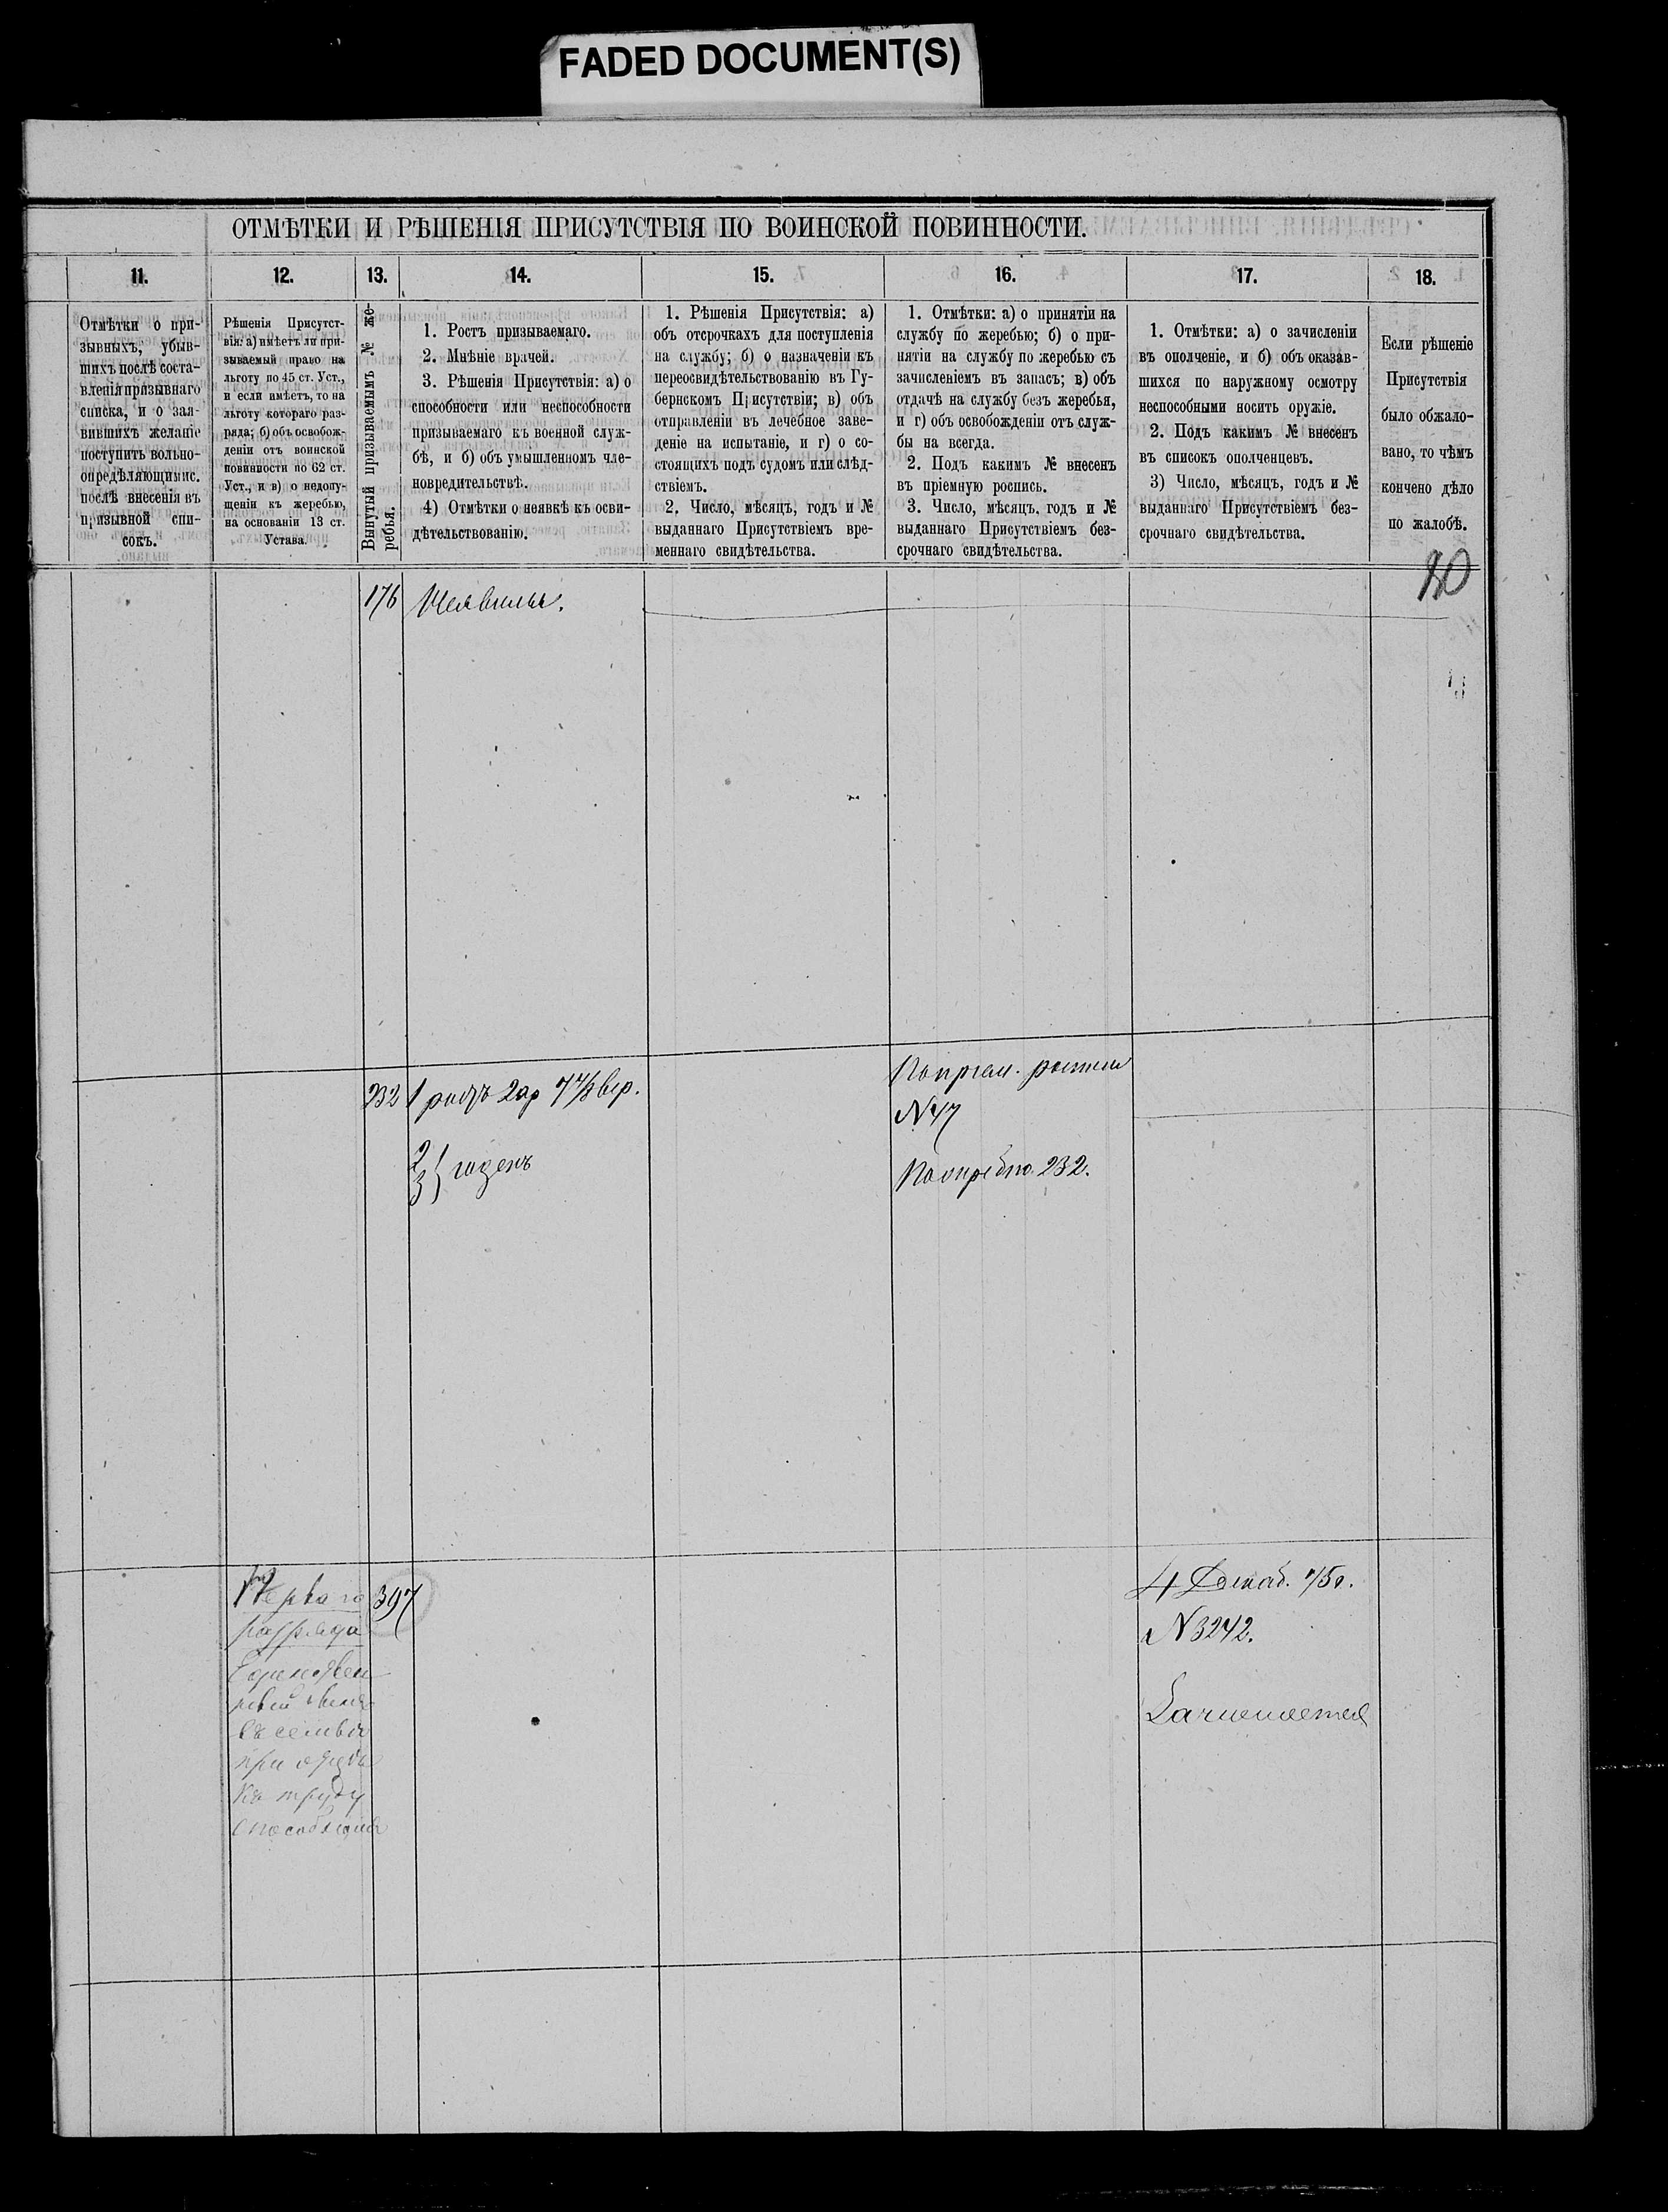 FADED DOCUMENT(S)
ОТМѢТКИ И РѢШЕНІЯ ПРИСУТСТВІЯ ПО ВОИНСКОЙ ПОВИННОСТИ.
11.
Отмѣтки о при-
зывныхъ, убыв-
шихъ послѣ соста-
вленія призывнаго
списка, и о зая-
вившихъ желаніе
поступить вольно-
опредѣляющимис.
послѣ внесенія въ
призывной спи-
сокъ.
12.
Рѣшенія Присутст-
вія: а) имѣетъ ли при-
зываемый право на
льготу по 45 ст. Уст.,
и если имѣетъ, то на
льготу котораго раз-
ряда; б) объ освобож-
деніи отъ воинской
повинности по 62 ст.
Уст., и в) о недопу-
щеніи къ жеребью,
на основаніи 13 ст.
Устава.
13.
Вынутый призываемымъ № же-
ребья.
14.
1. Ростъ призываемаго.
2. Мнѣніе врачей.
3. Рѣшенія Присутствія: а) о
способности или неспособности
призываемаго къ военной служ-
бѣ, и б) объ умышленномъ чле-
новредительствѣ.
4) Отмѣтки о неявкѣ къ осви-
дѣтельствованію.
15.
1. Рѣшенія Присутствія: а)
объ отсрочкахъ для поступленія
на службу; б) о назначеніи къ
переосвидѣтельствованію въ Гу-
бернскомъ Присутствіи; в) объ
отправленіи въ лечебное заве-
деніе на испытаніе, и г) о со-
стоящихъ подъ судомъ или слѣд-
ствіемъ.
2. Число, мѣсяцъ, годъ и №
выданнаго Присутствіемъ вре-
меннаго свидѣтельства.
16.
1. Отмѣтки: а) о принятіи на
службу по жеребью; б) о при-
нятіи на службу по жеребью съ
зачисленіемъ въ запасъ; в) объ
отдачѣ на службу безъ жеребья,
и г) объ освобожденіи отъ служ-
бы на всегда.
2. Подъ какимъ № внесенъ
въ пріемную роспись.
3. Число, мѣсяцъ, годъ и №
выданнаго Присутствіемъ без-
срочнаго свидѣтельства.
17.
1. Отмѣтки: а) о зачисленіи
въ ополченіе, и б) объ оказав-
шихся по наружному осмотру
неспособными носить оружіе.
2. Подъ какимъ № внесенъ
въ списокъ ополченцевъ.
3) Число, мѣсяцъ, годъ и №
выданнаго Присутствіемъ без-
срочнаго свидѣтельства.
18.
Если рѣшеніе
Присутствія
было обжало-
вано, то чѣмъ
кончено дѣло
по жалобѣ.
176
232
1 ростъ 2 ар 7 4/8 вер.
2
3 } годенъ
По пріем. росписи
№ 47
232.
Перваго
разряда
въ семьѣ
при
къ труду
397
4 Декаб. 75 г.
№ 3242.